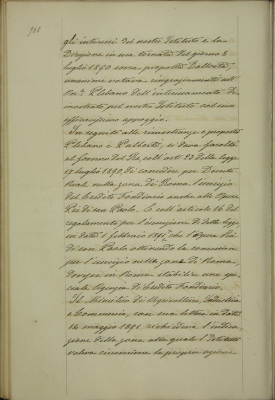 gli interessi del nostro Istituto e la
Direzione in una tornata del giorno 8
luglio 1890 sovra proposta Balbotti,
unanime votava ringraziamenti all'
On. Plebano dell'interessamento di-
mostrato pel nostro Istituto col suo
efficacissimo appoggio.
In seguito alle rimostranze e proposte
Plebano e Palberti, si dava facoltà
al Governo del Re, coll'art. 13 della legge
17 luglio 1890, di concedere per Decreto
Reale nella zona di Roma l'esercizio
del Credito Fondiario anche alle Opere
Pie di San Paolo. E coll'articolo 16 del
regolamento per l'esecuzione di detta legge
in data 1 febbraio 1891, che l'Opera Pia
di San Paolo ottenendo la concessione
per l'esercizio nella zona di Roma
dovesse in Roma stabilire una spe-
ciale Agenzia di Credito Fondiario.
Il Ministero di Agricoltura, Industria
e Commercio, con sua lettera in data
14 maggio 1891 richiedeva l'indica-
zione della zona alla quale l'Istituto
voleva circoscrivere la propria azione